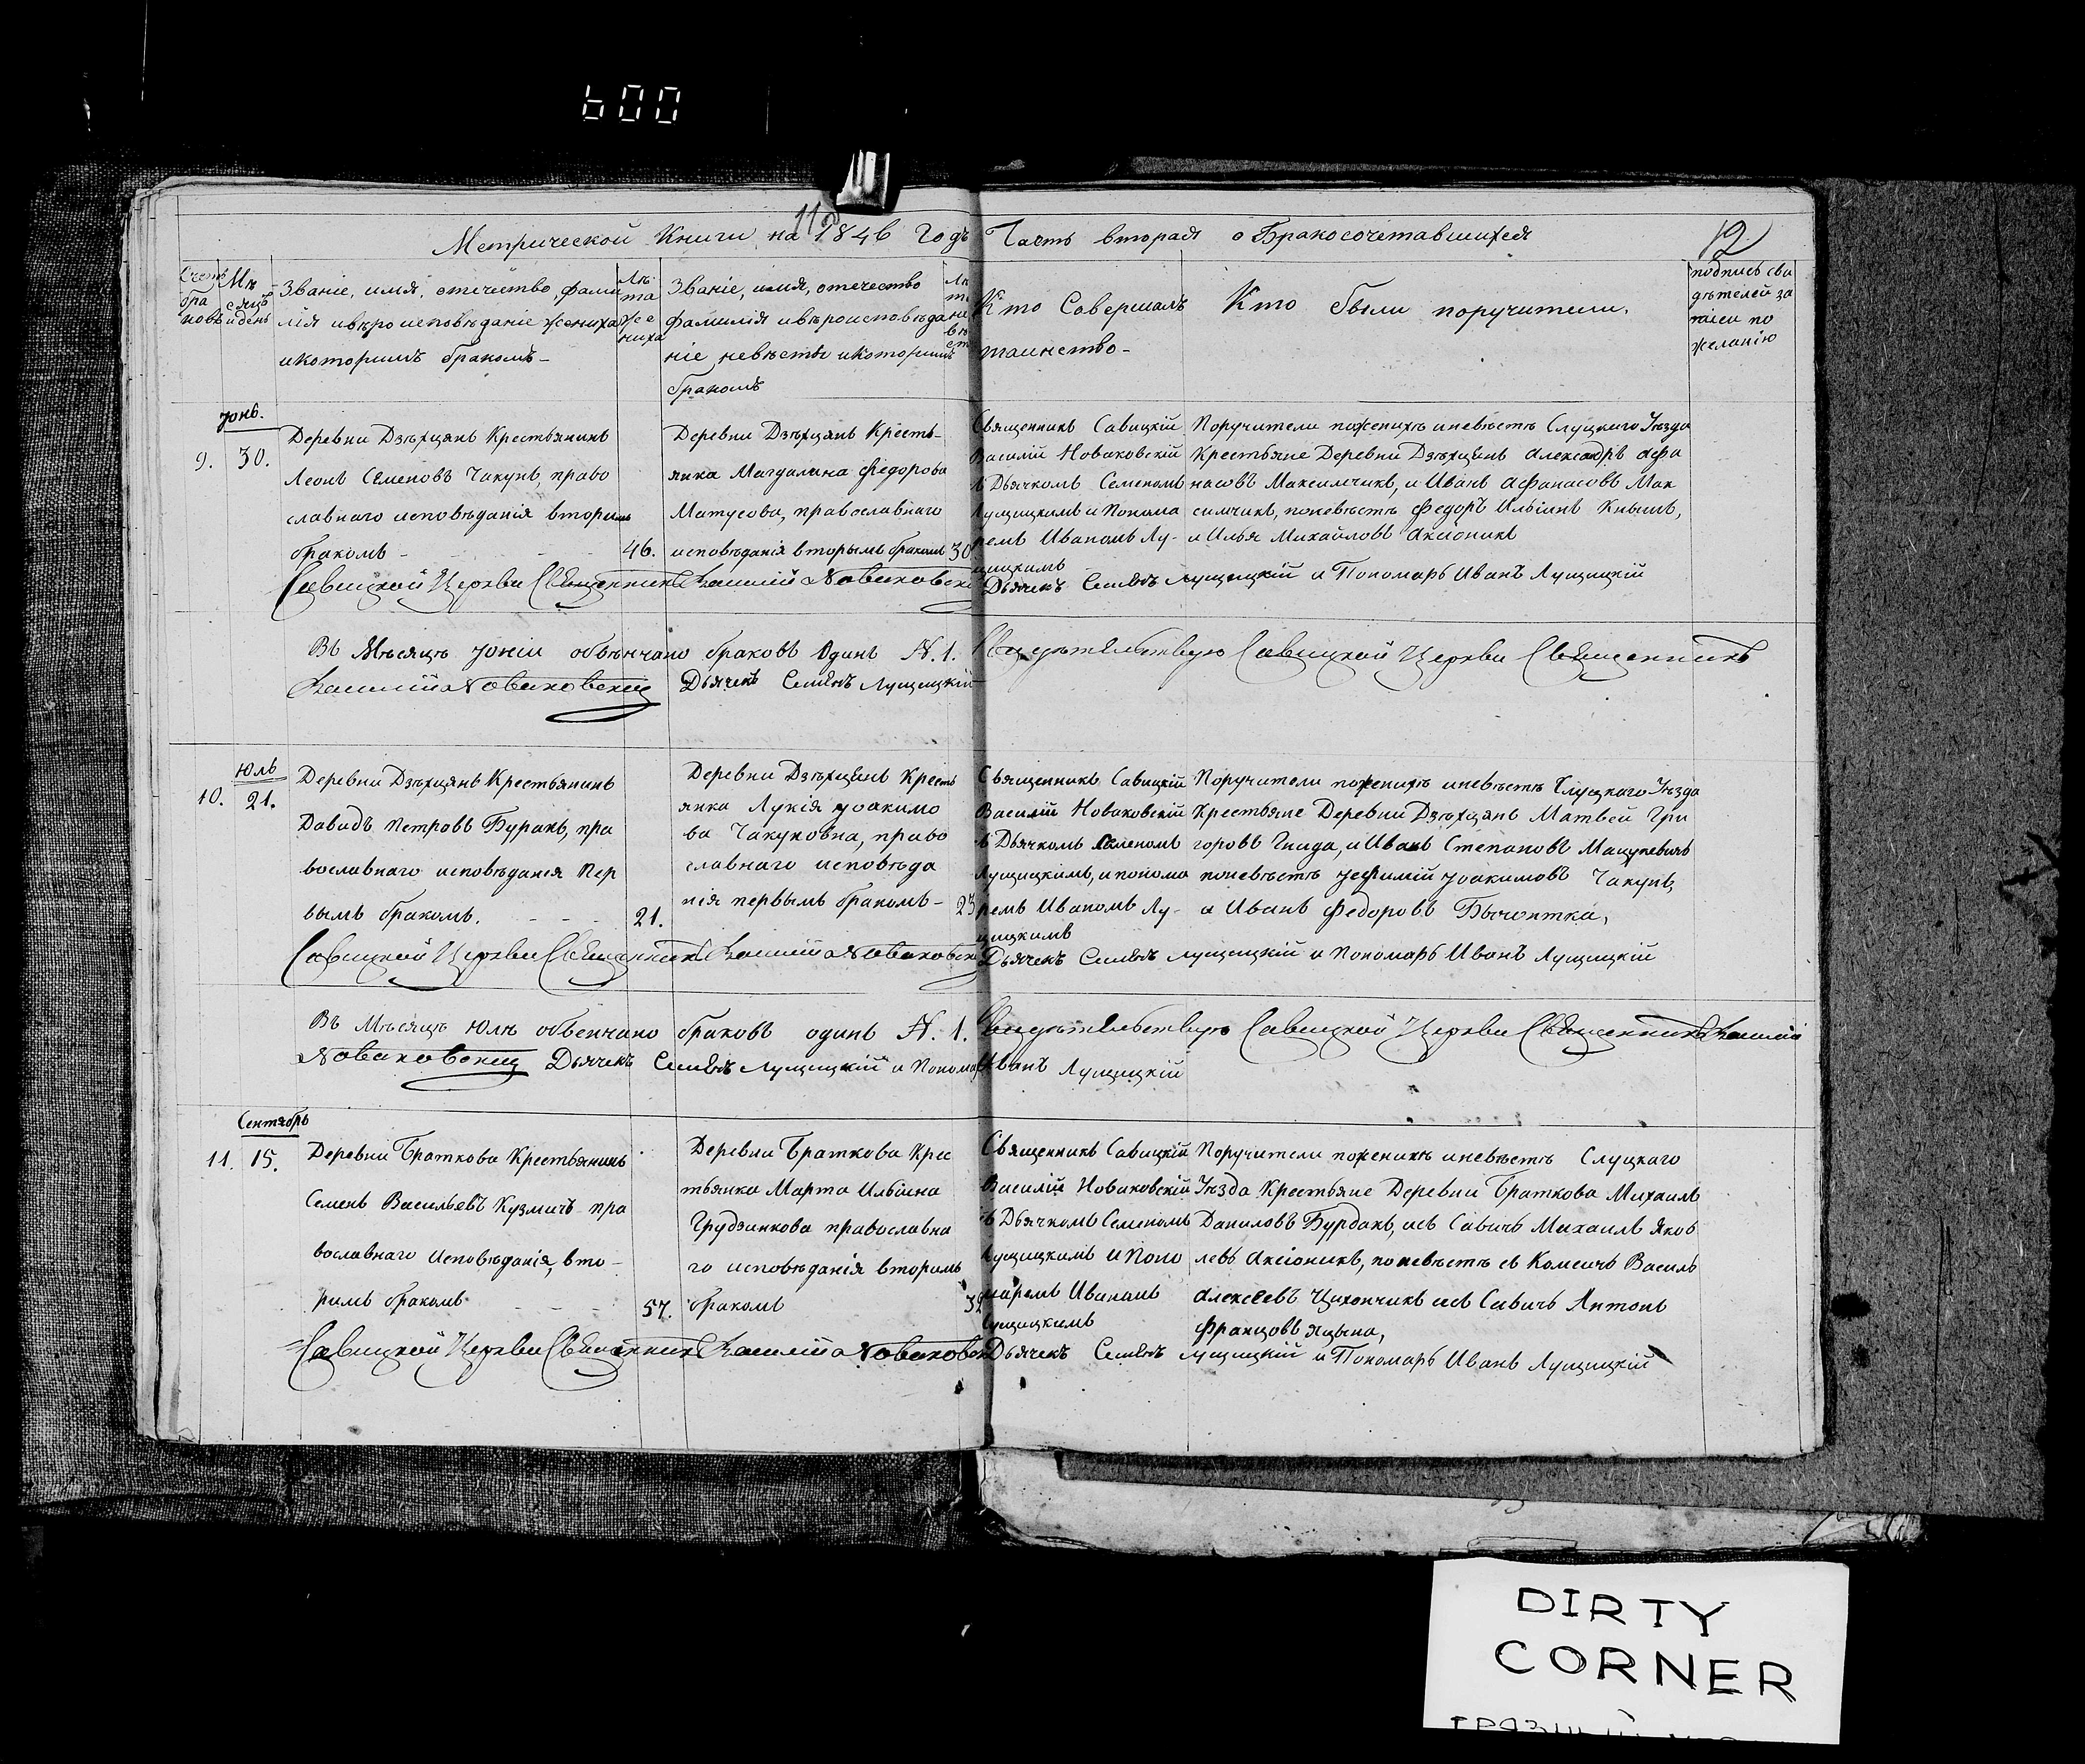 600
11
Метрической Книги на 1846 Годъ Часть вторая о Бракосочетавшихся
12
Счетъ браковъ
Мѣсяцъ и день
Званіе, имя, отечество, фами
лія и вѣроисповѣданіе жениха
и которимъ бракомъ -
Лѣта жениха
Званіе, имя, отечество
фамилія и вѣроисповѣда
ніе невѣсты и которимъ
бракомъ
Кто Совершалъ
таинство -
Кто были поручители.
подпись сви
дѣтелей за
писи по
желанію
Іюнь.
9. 30.
Деревни Дзѣхцянъ Крестьянинъ
Леонъ Семеновъ Чакунъ, право
славнаго исповѣданія вторимъ
бракомъ - 46.
Деревни Дзѣхцянъ Кресть-
янка Магдалина Федорова
Матусова, православнаго
исповѣданія вторымъ бракомъ 30
Священникъ Савицкій
Василій Новаковскій
съ Дьячкомъ Семеномъ
Лущицкимъ и Понома
ремъ Иваномъ Лу-
щицкимъ
Поручители по женихѣ и невѣстѣ Слуцкаго Уѣзда
Крестьяне Деревни Дзѣхцянъ Александръ Афа
насовъ Максимчикъ, и Иванъ Афанасовъ Мак
симчикъ, по невѣстѣ Федоръ Ильинъ Книшъ,
и Илья Михайловъ Аксіоникъ
Савицкой Церкви Священникъ Василій Новаковскій
Дьячекъ Семенъ Лущицкій и Пономарь Иванъ Лущицкій
Въ Мѣсяцѣ Іюніи обвѣнчано браковъ Одинъ N. 1. Свидѣтельствую Савицкой Церкви Священникъ
Василій Новаковскій Дьячекъ Семенъ Лущицкій
Юль
10. 21.
Деревни Дзѣхцянъ Крестьянинъ
Давидъ Петровъ Буракъ, пра
вославнаго исповѣданія пер
вымъ бракомъ. - - - 21.
Деревни Дзѣхцянъ Кресть
янка Лукія Іоакимо
ва Чакуновна, право
славнаго исповѣда
нія первымъ бракомъ - 23
Священникъ Савицкій
Василій Новаковскій
съ Дьячкомъ Семеномъ
Лущицкимъ, и понома
ремъ Иваномъ Лу-
щицкимъ
Поручители по женихѣ и невѣстѣ Слуцкаго Уѣзда
Крестьяне Деревни Дзѣхцянъ Матвей Гри
горовъ Гнида, и Иванъ Степановъ Мацукевичъ
по невѣстѣ Іефимій Іоакимовъ Чакунъ,
а Иванъ Федоровъ
Савицкой Церкви Священникъ Василій Новаковскій
Дьячекъ Семенъ Лущицкій и Пономарь Иванъ Лущицкій
Въ Мѣсяцѣ Юлѣ обвенчано браковъ одинъ N. 1. Свидѣтельствую Савицкой Церкви Священникъ Василій
Новаковскій Дьячекъ Семенъ Лущицкій и Пономарь Иванъ Лущицкій
Сентябрь
11. 15.
Деревни Браткова Крестьянинъ
Семенъ Васильевъ Кузмичъ пра
вославнаго исповѣданія, вто-
римъ бракомъ - - - 57.
Деревни Браткова Крес
тьянка Марта Ильіина
Грудзинкова православна
го исповѣданія вторимъ
бракомъ
Священникъ Савицкій
Василій Новаковскій
съ Дьячкомъ Семеномъ
Лущицкимъ и Поно
маремъ Иваномъ
Лущицкимъ
Поручители по женихѣ и невѣстѣ Слуцкаго
Уѣзда Крестьяне Деревни Браткова Михаилъ
Даниловъ Бурдакъ, исъ Савичъ Михаилъ Яков
левъ Аксіоникъ, по невѣстѣ съ Комсичъ Василь
Алексеевъ Цихончикъ исъ Савичъ Антонъ
Францовъ Яцына,
Савицкой Церкви Священникъ Василій Новаковскій
Дьячекъ Семенъ Лущицкій и Пономарь Иванъ Лущицкій
DIRTY
CORNER